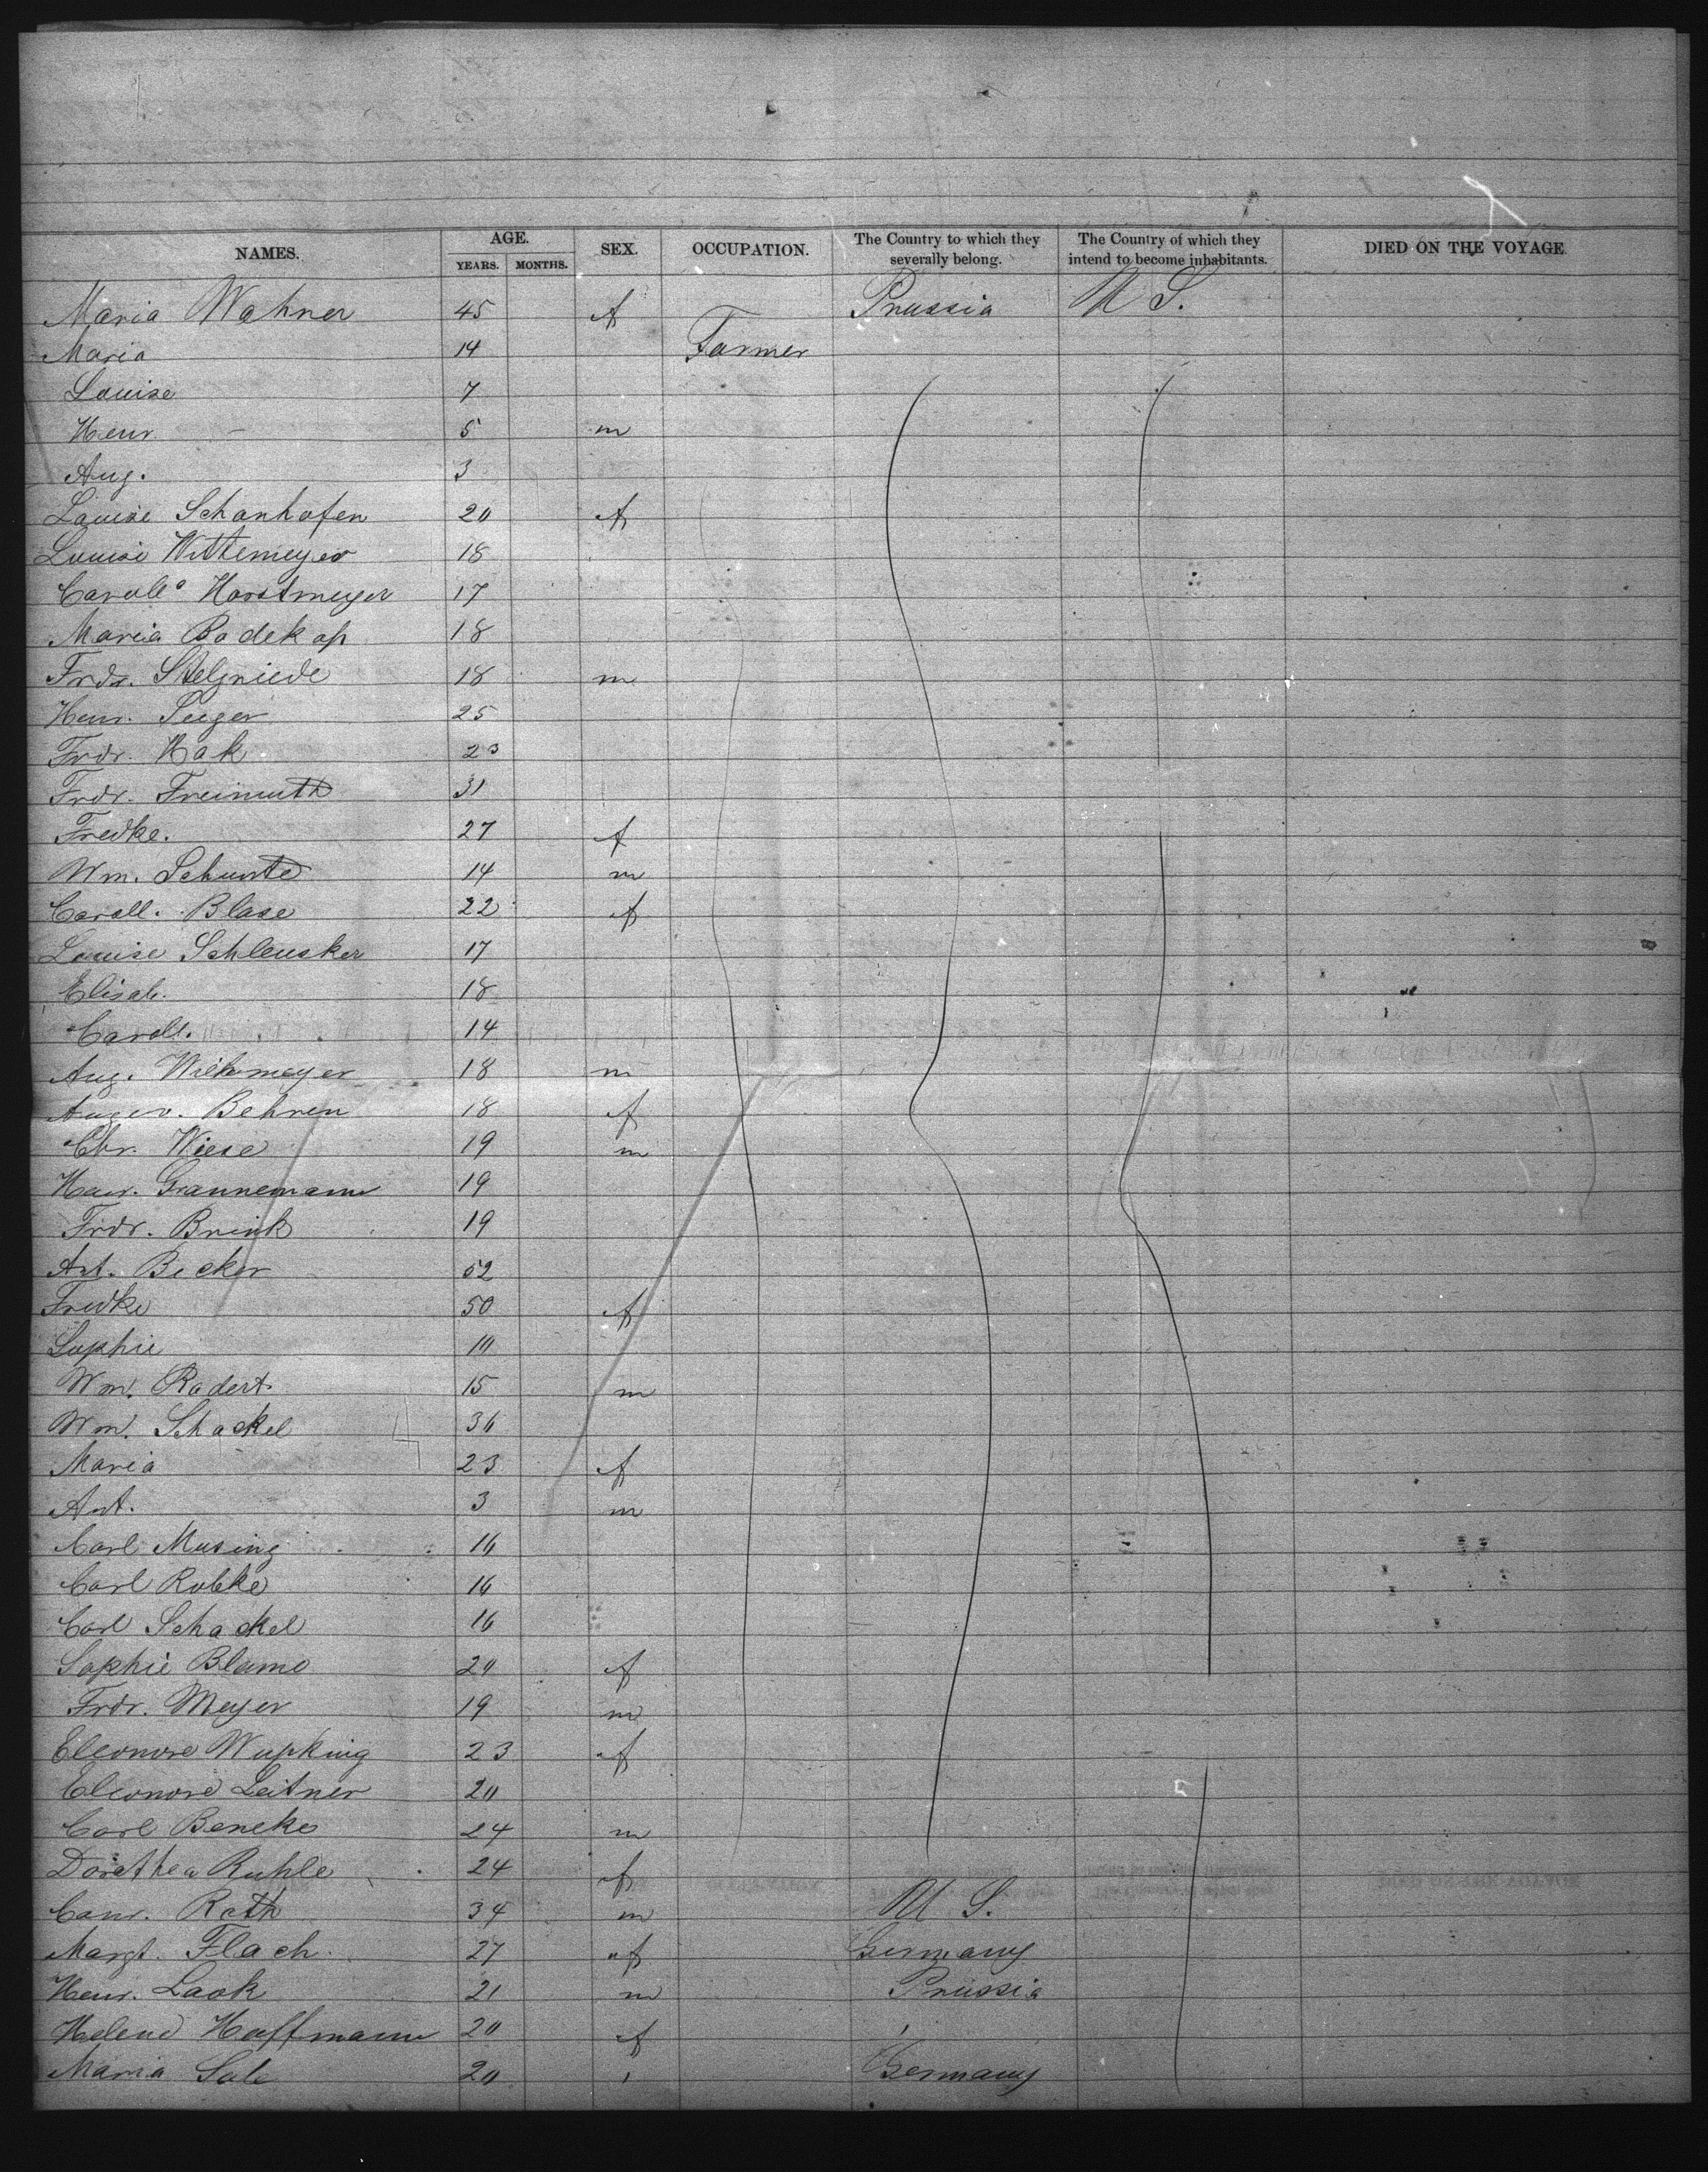 NAMES. AGE. SEX. OCCUPATION. The Country to which they severally belong. The Country of which they intend to become inhabitants. DIED ON THE VOYAGE
YEARS. MONTHS.
Maria Wahner 45 f Prussia U S.
Maria 14 Farmer
Louise 7
Henr. 5 m
Aug. 3
Louise Schanhofen 20 f
Louise Wittemeyer 18
Caroll^a Horstmeyer 17
Maria Bodekop 18
Frdr. Stelgriede 18 m
Henr. Seeger 25
Frdr. Hak 23
Frdr. Freimuth 31
Fredke. 27 f
Wm. Schunte 14 m
Caroll. Blase 22 f
Louise Schleusker 17
Elisab. 18
Caroll. 14
Aug. Wilkmeyer 18 m
Behren 18 f
Chr. Wiese 19 m
Henr. Grannemann 19
Frdr. Brink 19
Ant. Becker 52
Fredke 50 f
Sophie 10
Wm. Radert 15 m
Wm. Schackel 30
Maria 23 f
Ant. 3 m
Carl Musing 16
Carl Robke 16
Carl Schackel 16
Sophie Blame 20 f
Frdr. Meyer 19 m
Eleonore Wupking 23 f
Eleonore Leitner 20
Carl Beneke 24 m
Dorethea Ruhle 24 f
Conr. Roth 34 m U S.
Margt. Flach 27 f Germany
Henr. Laok 21 m Prussia
Helene Hoffmann 20 f
Maria Sale 20 Germany